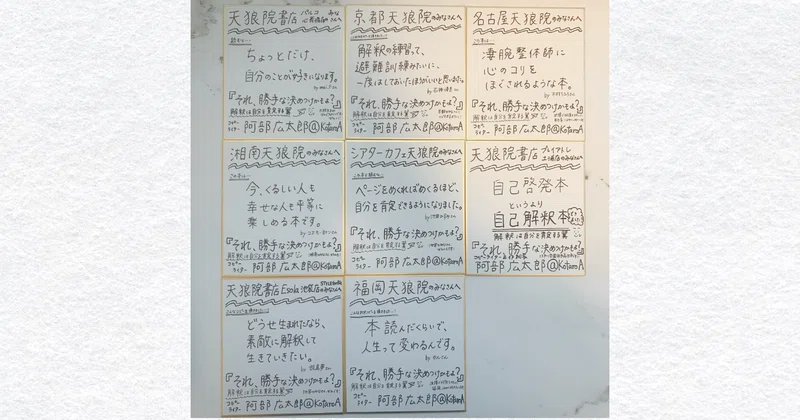 天狼院書店
みなさんへ
ちょっとだけ、
自分のことが好きになります。
『それ、勝手な決めつけかもよ?』
解釈は自分を肯定する翼
コピーライター 阿部 広太郎@KotaroA
京都天狼院のみなさんへ
解釈の練習って、
避難訓練みたいに、
一度はしておいたほうがいいと思います。
『それ、勝手な決めつけかもよ?』
解釈は自分を肯定する翼
コピーライター 阿部 広太郎@KotaroA
名古屋天狼院のみなさんへ
凄腕整体師に
心のコリを
ほぐされるような本。
『それ、勝手な決めつけかもよ?』
解釈は自分を肯定する翼
コピーライター 阿部 広太郎@KotaroA
湘南天狼院のみなさんへ
今、くるしい人も
幸せな人も平等に
楽しめる本です。
『それ、勝手な決めつけかもよ?』
解釈は自分を肯定する翼
コピーライター 阿部 広太郎@KotaroA
シアターカフェ天狼院のみなさんへ
ページをめくればめくるほど、
自分を肯定できるようになりました。
『それ、勝手な決めつけかもよ?』
解釈は自分を肯定する翼
コピーライター 阿部 広太郎@KotaroA
天狼院書店
自己啓発本
というより
自己解釈本
解釈は自分を肯定する翼
『それ、勝手な決めつけかもよ?』
阿部 広太郎@KotaroA
天狼院書店 Esola池袋店のみなさんへ
どうせ生まれたなら、
素敵に解釈して
生きていきたい。
『それ、勝手な決めつけかもよ?』
解釈は自分を肯定する翼
コピーライター 阿部 広太郎@KotaroA
福岡天狼院のみなさんへ
本読んだくらいで、
人生って変わるんです。
『それ、勝手な決めつけかもよ?』
解釈は自分を肯定する翼
コピーライター 阿部 広太郎@KotaroA